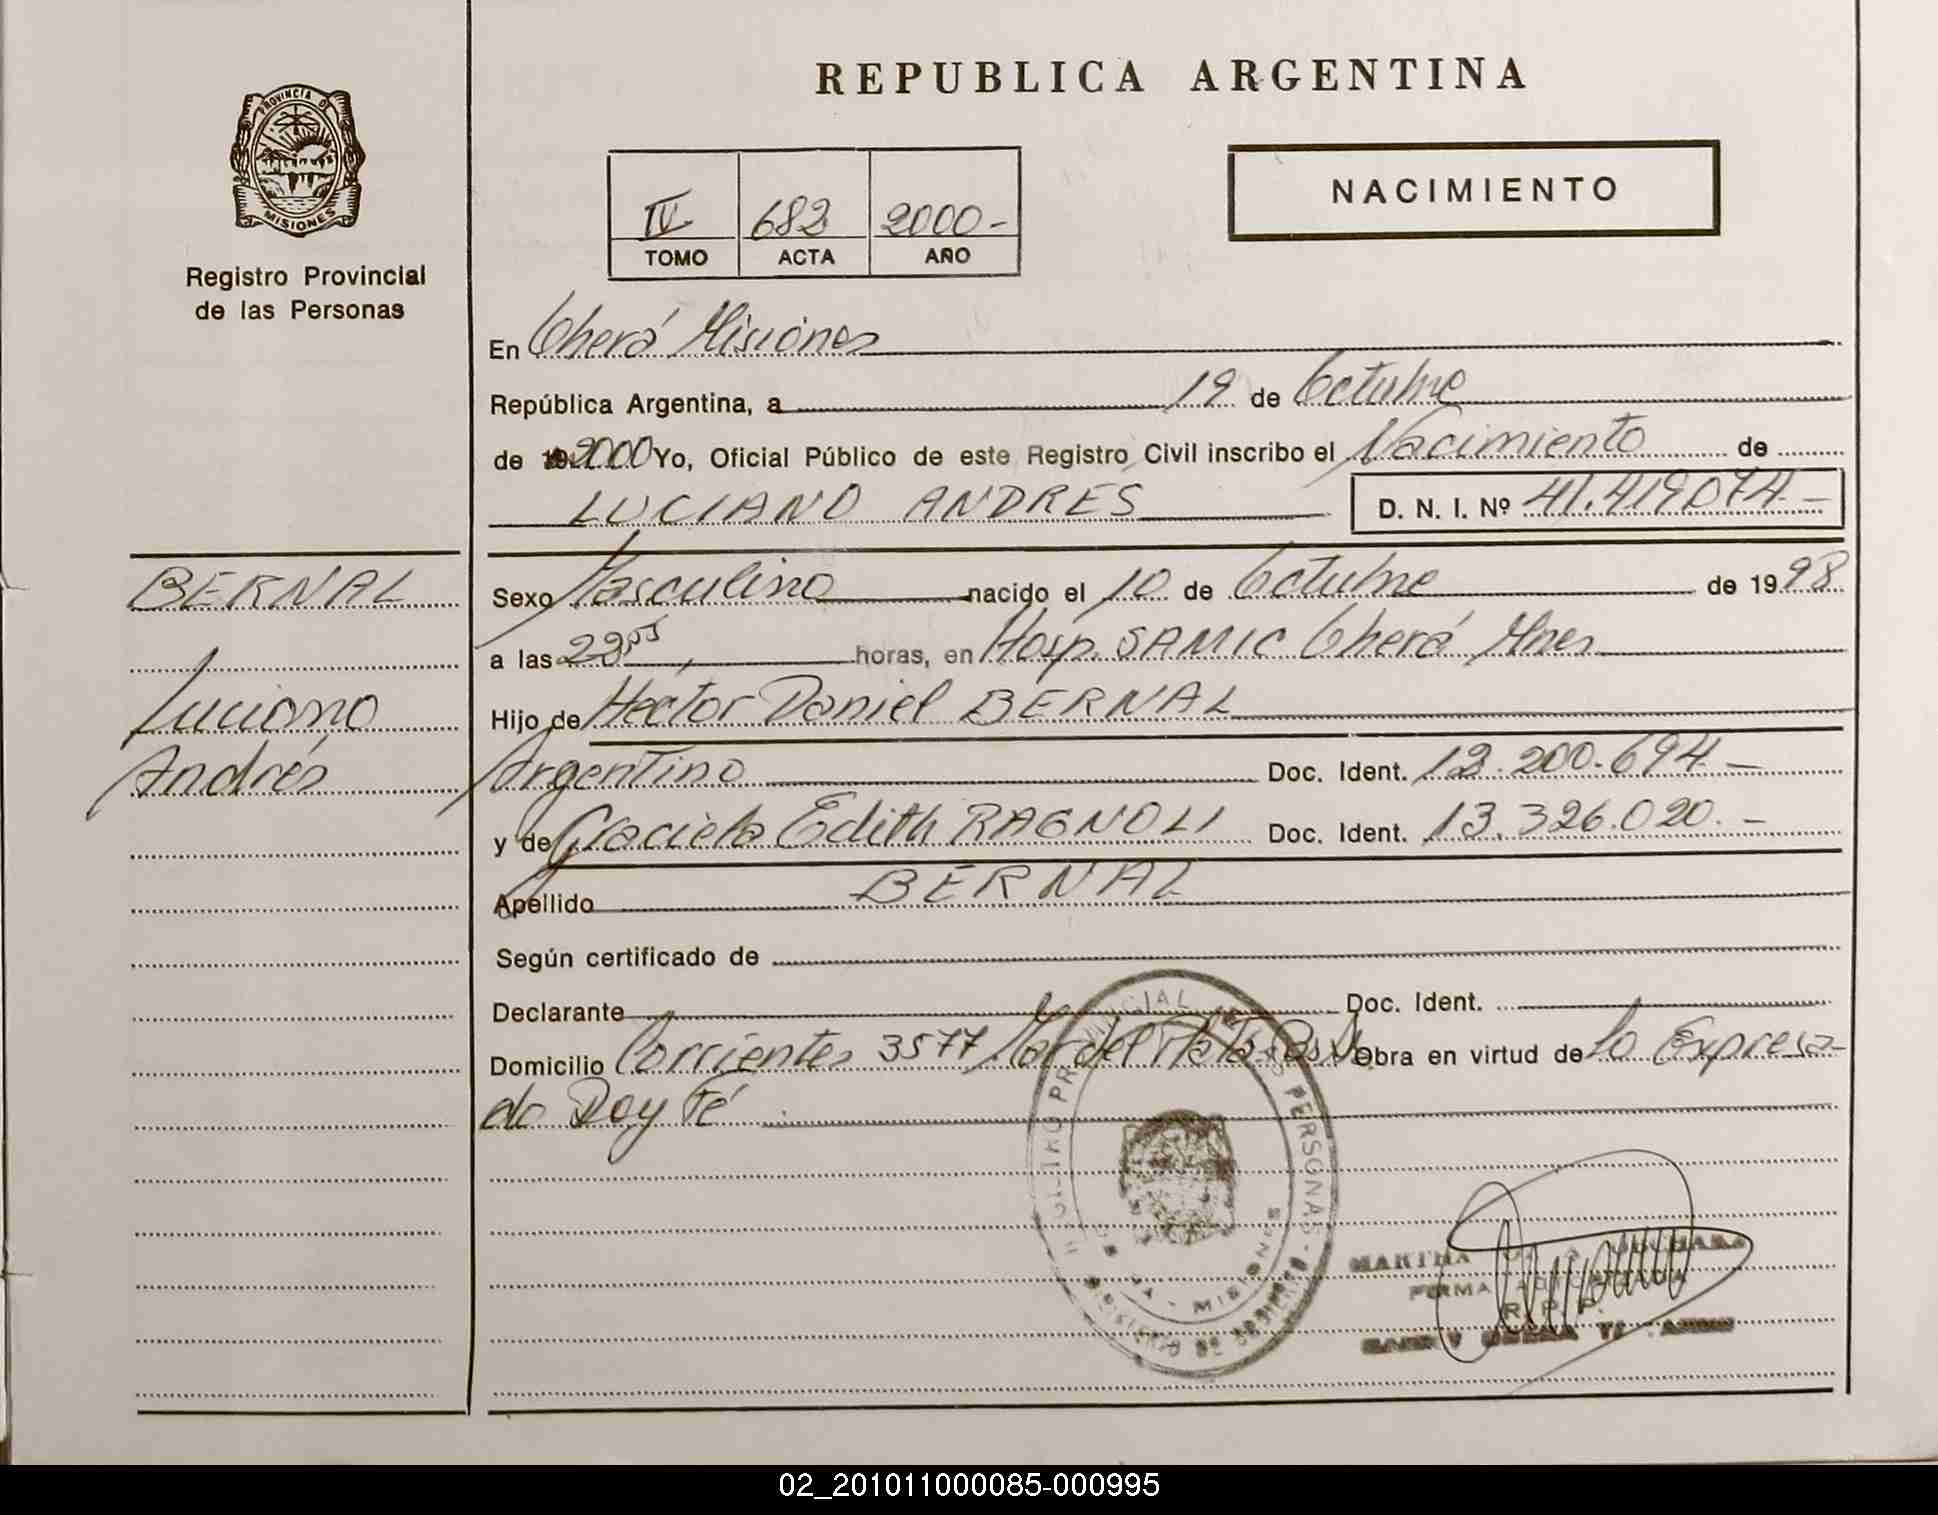 REPUBLICA ARGENTINA
PROVINCIA DE
MISIONES
Registro Provincial
de las Personas
NACIMIENTO
IV 682 2000-
TOMO ACTA AÑO
En Oberá Misiones
República Argentina, a 19 de Octubre
de 2000 Yo, Oficial Público de este Registro Civil inscribo el Nacimiento de
LUCIANO ANDRES D. N. I. Nº 41.419.074-
BERNAL
Luciano
Andrés
Sexo Masculino nacido el 10 de Octubre de 1998
a las horas, en Hosp. SAMIC Oberá Mnes
Hijo de Héctor Daniel BERNAL
Argentino Doc. Ident. 13.200.694-
y de Graciela Edith RAGNOLI Doc. Ident. 13.326.020.-
Apellido BERNAL
Según certificado de
Declarante Doc. Ident.
Domicilio Corrientes 3577 Mar del Plata Bs As Obra en virtud de lo Expresa-
do Doy Fé
PERSONAS
MISIONES
MARTHA
FIRMA AUTORIZADA
R. P. P.
02_201011000085-000995